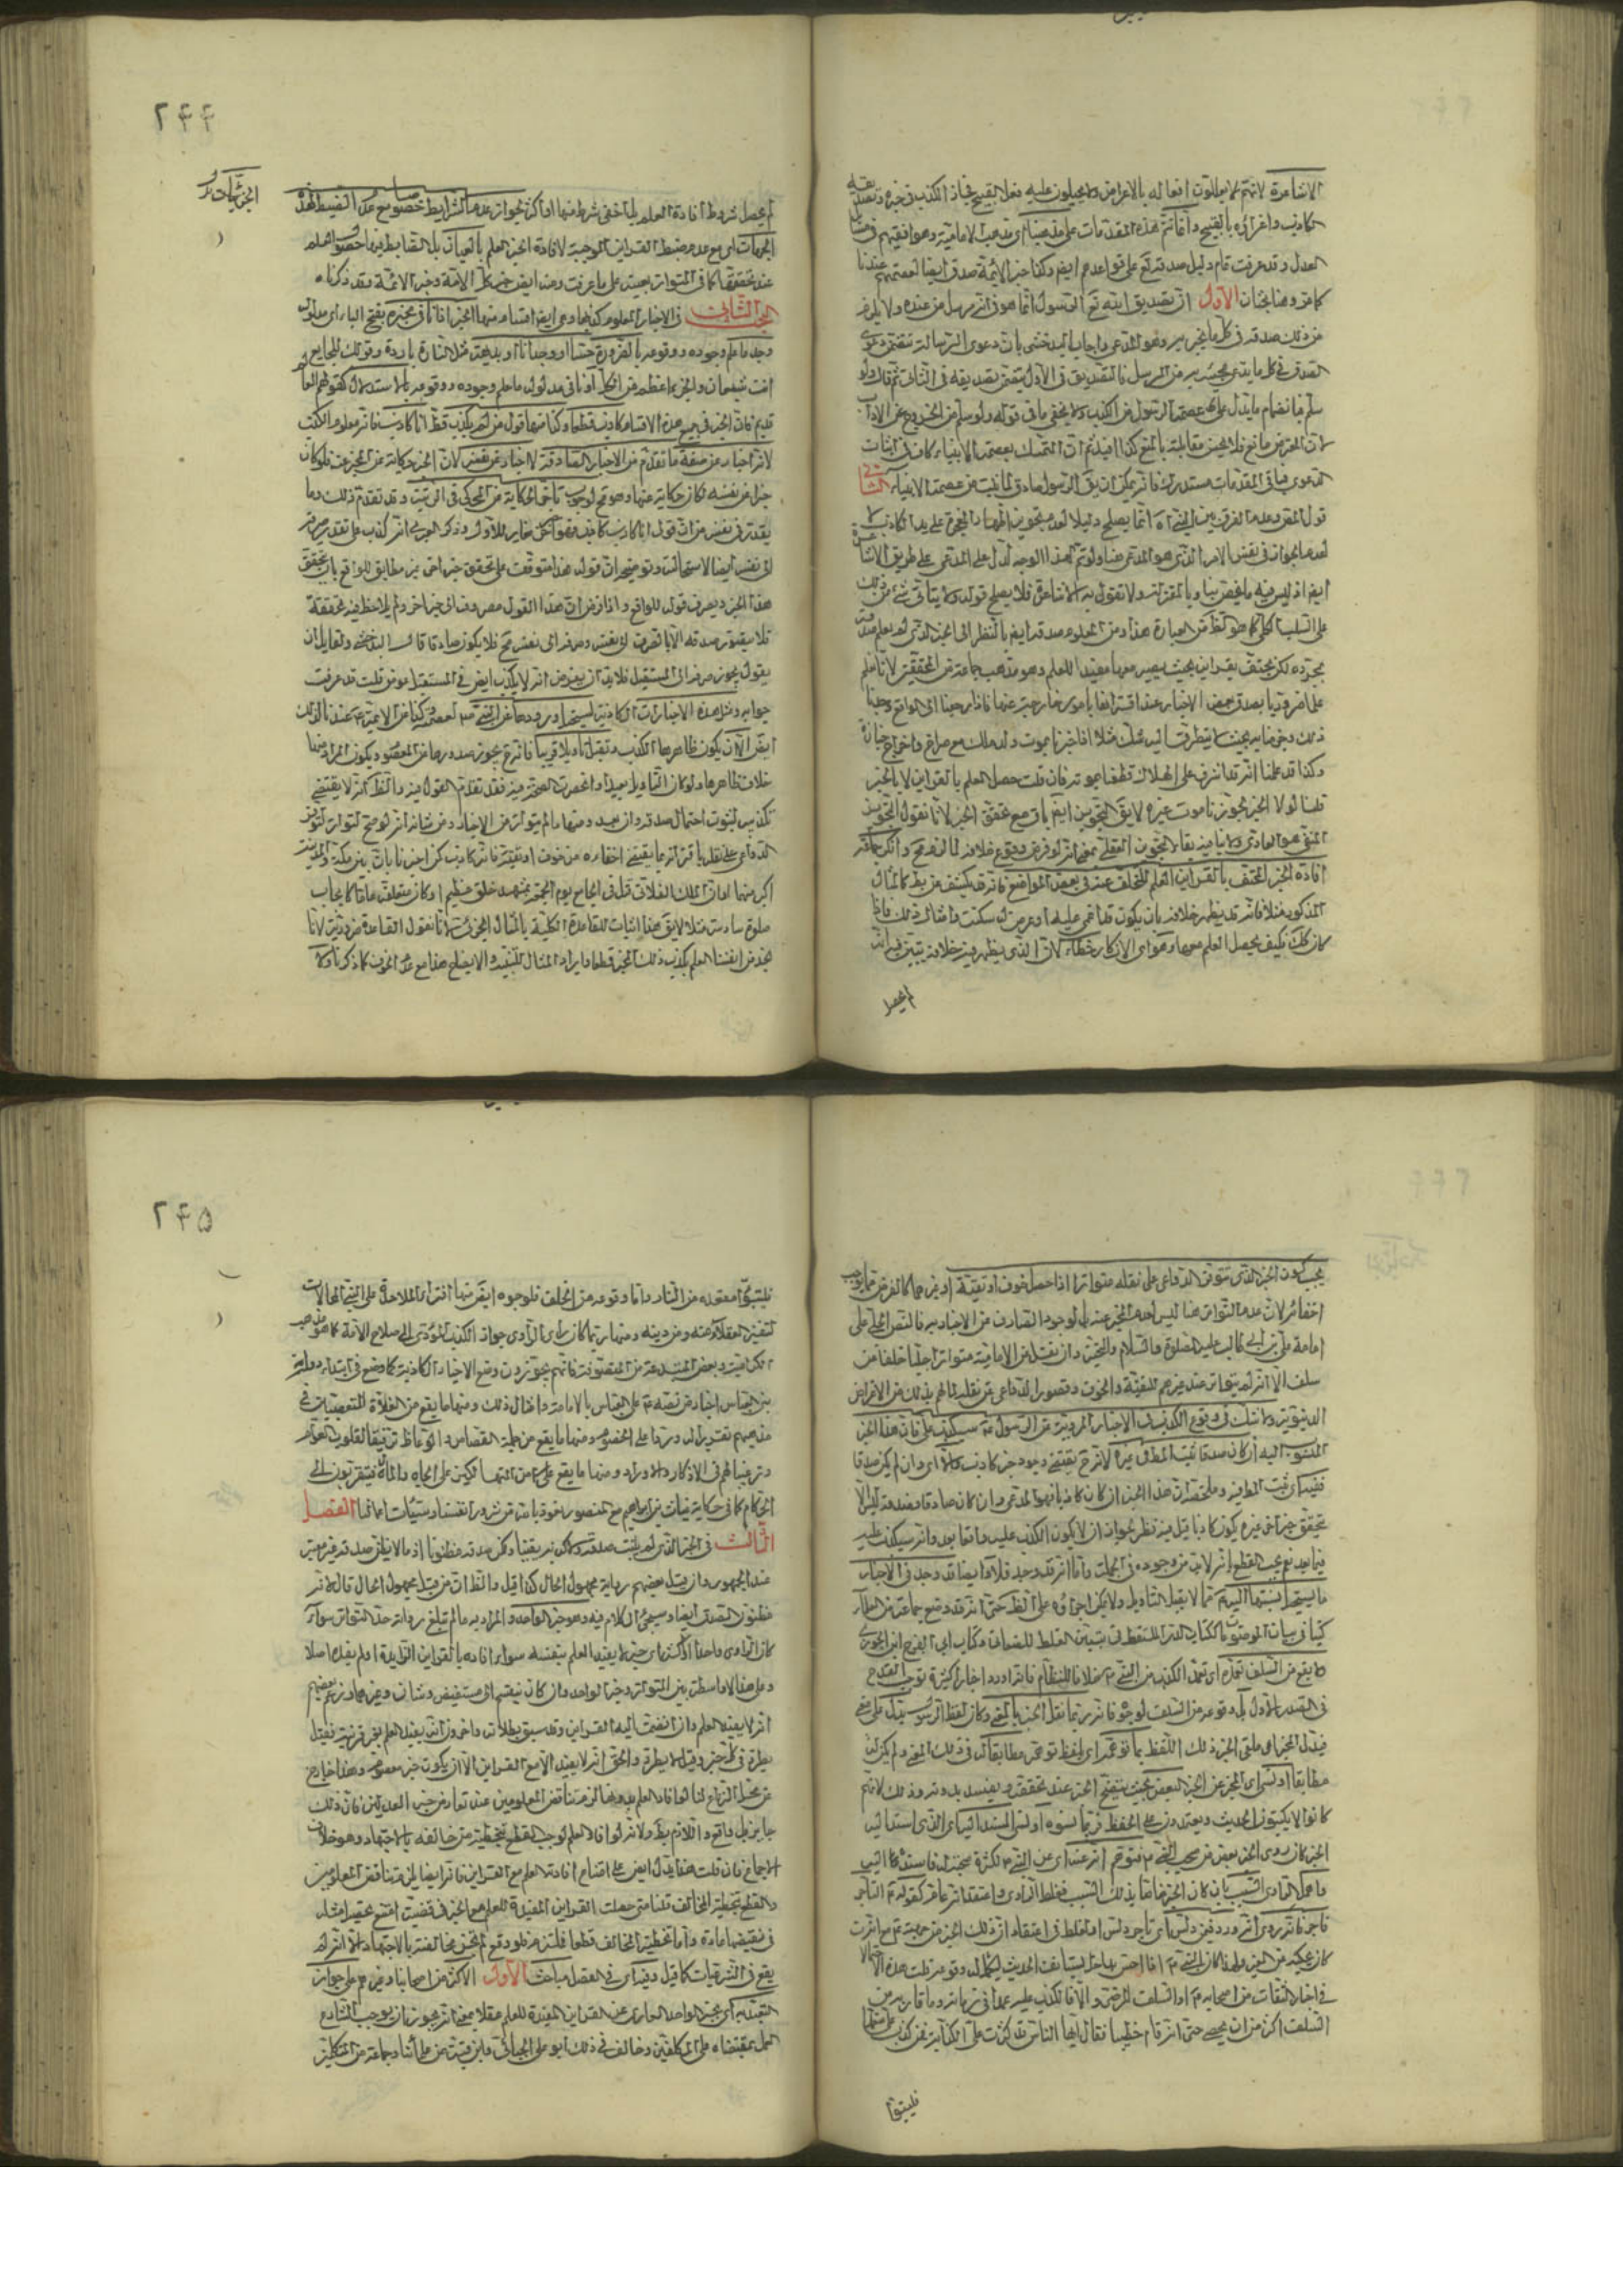 الاشاعرة لانهم لا يعللون افعاله بالاغراض ولا يحيلون عليه فعل القبيح فجاز الكذب في خبره وتصديقه
الكاذب واغرائه بالقبيح وافاتتم هذه المقدمات على مذهبنا اى مذهب الامامية وموافقيهم في مسئلة
العدل وقد عرفت تمام دليل صدقه تع على قواعدهم ايضا وكذا خبر الائمة صدق ايضا لعصمتهم عندنا
كما مر وهنا بحثان الأول ان تصديق الله تع الرسول انما هو في انه مرسل من عنده ولا يلزم
من ذلك صدقه في كل ما يخبر به وهو المدعى واجاب المدخشى بان دعوى الرسالة تتضمن دعوى
الصدق في كل ما يدعى مجيئه به من المرسل فالتصديق في الاول يقتضى تصديقه في الثانى ثم قال ولو
سلم فبانضمام ما يدل على عصمة الرسول من الكذب ولا يخفى ما في قوله ولو سلم من الخروج عن الاداب
لان المعترض مانع فلا يحسن مقابلته بالمنع كذا افيد ثم ان التمسك بعصمة الانبياء كاف في اثبات
الدعوى فباقى المقدمات مستدرك فانه يمكن ان يق الرسول صادق لما ثبت من عصمة الانبياء الثانى
قول المقر وعدم الفرق بين النبى آه انما يصلح دليلا لعدم تجويز اظهار المعجزة على يد الكاذب لا
لعدم الجواز في نفس الامر الذى هو المدعى هنا ولو تم هذا الوجه لدل على المدعى على طريق الاشاعرة
ايضا اذ ليس فيه ما يختص بنا وبالمعتزلة ولا تقول به الاشاعرة فلا يصلح قوله ولا يتاتى شئ من ذلك
على السلب الكلى كما هو الظ من العبارة هذا ومن المعلوم صدقه ايضا بالنظر الى الخبر الذى لم يعلم صدقه
بمجرده لكن يحتف بقراين بحيث يصير معها مفيدا للعلم وهو مذهب جماعة من المحققين لانا نعلم
علما ضروريا بصدق بعض الاخبار عند اقترانها بامور خارجة عنها فانا رجعنا الى الواقع وجدنا
ذلك وجدنا به بحيث لا يتطرق اليه شك مثلا اذا اخبرنا بموت ولد ملك مع صراخ واخراج جنازة
وكنا قد علمنا انه قد اشرف على الهلاك قطعنا بموته فان قلت حصل العلم بالقراين لا بالخبر
قلنا لولا الخبر لجوزنا موت غيره لا يق التجويز ايضا باق مع تحقق الخبر لانا نقول التجويز
المنفى هو العادى ولا ينافيه بقاء التجويز العقلى بمعنى انه لو فرض وقوع خلافه لما لزم مح وانكر جماعة
افادة الخبر المحتف بالقراين العلم للتخلف عنه في بعض المواضع فانه قد يكشف عن بط كالمثال
المذكور مثلا فانه قد يظهر خلافه بان يكون قد اغمى عليه او عرض له سكتة وامثال ذلك فاذا
كان كك فكيف يحصل العلم معها وهو اى الانكار خطاء لان الذى يظهر فيه خلافه يتبين فيه انه
لم يحصل
۲۴۴
لم يحصل شروط افادة العلم بل اختفى شرط منها او اكثر لجواز عدم الشرايط خصوصا مع عدم انضباط هذه
الجزئيات
الجزئيات اى مع عدم ضبط القراين الموجبة لافادة الخبر العلم بالعيان بل الضابط فيها حصول العلم
عند تحققها كما في المتواتر بعينه على ما عرفت ومنه ايضا خبر كل الامة وخبر الائمة وقد ذكرناه
البحث الثانى في الاخبار المعلوم كذبها وهى ايضا اقسام منها الخبر المنافى مخبره بفتح الباء اى مدلوله
وجد ما علم وجوده ووقوعه بالضرورة حسا او وجدانا او بديهة مثل النار باردة وقولك للجايع
انت شبعان والجزء اعظم من الكل او نافى مدلوله ما علم وجوده ووقوعه بالاستدلال كقولهم العالم
قديم فان الخبر في جميع هذه الاقسام كاذب قطعا وكذا منها قول من لم يكذب قط انا كاذب فانه معلوم الكذب
لانه اخبار عن صفة ما تقدم من الاخبار الصادقة لا اخبار عن نفسه لان الخبر حكاية عن المخبر عنه فلو كان
خبرا عن نفسه لكان حكاية عنها وهو مح لوجوب تاخر الحكاية عن المحكى في الرتبة وقد تقدم ذلك وما
يقدح في نفسه من ان قول انا كاذب كاذب فهو اخر مغاير للاول وذكر العبرى انه كذب على تقدير صرفه
الى نفسه ايضا لاستحالته وتوضيحه ان قوله هذا متوقف على تحقق خبر اخر غير مطابق للواقع بان يتحقق
هذا الخبر ويصرف قوله للواقع واذا فرض ان هذا القول مصروف الى خبر اخر ولم يلاحظ فيه تحققه
فلا يتصور صدقه الا بالصرف الى نفسه وصرفه الى نفسه مح فلا يكون صادقا قال البدخشى ولقايل ان
يقول يجوز صرفه الى المستقبل فلا بد ان يفرض انه لا يكذب ايضا في المستقبل موفق قلت قد عرفت
جوابه ومثل هذه الاخبارات الكاذبة يستحيل ورودها عن النبى ص لعصمته وكذا من الائمة ع عندنا لذلك
ايض الا ان يكون ظاهرها الكذب وتقبل تاويلا قريبا فانه ح يجوز صدورها عن المعصوم ويكون المراد منها
خلاف ظاهرها ولو كان التاويل بعيدا وانحصرت الصحة فيه فقد تقدم القول فيه والظ انه لا يقتضى
تكذيبه لثبوت احتمال صدقه وان بعد ومنها ما لم يتواتر من الاخبار ومن شانه انه لو صح لتواتر لتوفر
الدواعى على نقله باقترانه بما يقتضى اخفاءه من خوف او تقية فانه كاذب كمن اخبرنا بان بين مكة والمدينة
اكبر منهما او ان الملك الفلانى قتل في الجامع يوم الجمعة بمشهد خلق عظيم او كان متعلقه عاما كايجاب
صلوة سادسة مثلا لا يق هذا اثبات للقاعدة الكلية بالمثال الجزئى لانا نقول القاعدة ضرورية لانا
نجد من انفسنا العلم بكذب ذلك الخبر قطعا وايراد المثال للتنبيه والايضاح هذا مع عدم الخوف كما ذكرنا ولا
يجب كون الخبر الذى تتوفر الدواعى على نقله متواترا اذا حصل خوف او تقية او غيرهما كالغرض مما يوجب
اخفائه لان عدم التواتر هنا ليس لعدم المخبر عنه بل لوجود الصارف من الاخبار به فالنص الجلى على
امامة على بن ابى طالب عليه الصلوة والسلام والتحية وان نقل من الامامية متواترا جليا خلفا عن
سلف الا انه لم يتواتر عند غيرهم للتقية والخوف وقصور الدواعى عن نقله لما لهم بذلك من الاغراض
الدنيوية ولا شك في وقوع الكذب في الاخبار المروية عن الرسول ص سيكذب على فان هذا الخبر
المنسوب اليه ان كان صدقا ثبت المط في غيره لانه ح يقتضى وجود خبر كاذب والا اى وان لم يكن صدقا
ففيه اى ثبت المط فيه وملخصه ان هذا الخبر ان كان كاذبا فهو المدعى وان كان صادقا فصدقه ليس الا
بتحقق خبر اخر غيره يكون كاذبا قيل فيه نظر لجواز ان لا يكون الكذب عليه واقعا بعد وانه سيكذب عليه
فيما بعد نعم يجب القطع انه لا بد من وجوده في الجملة واما انه قد وجد فلا وايضا قد وجد في الاخبار
ما يستحيل نسبتها اليه ص مما لا يقبل التاويل ولا يمكن اجراؤه على الظ حتى انه قد وضع جماعة من العلماء
كتبا في بيان الموضوعات ككتاب الدر الملتقط في تبيين الغلط للصغانى وكتاب ابى الفرج ابن الجوزى
ولا يقع من السلف تعمده اى تعمد الكذب عن النبى ص خلافا للنظام فانه اورد اخبارا كثيرة توجب القدح
في الصدر الاول بل وقوعه من السلف لوجوه فانه ربما نقل الخبر بالمعنى وكان لفظ الرسول يدل على معنى
فيبدل المخبر اى ملقى الخبر ذلك اللفظ بما توهمه اى بلفظ توهمه مطابقا له في ذلك المعنى ولم يكن له
مطابقا او نسى اى المخبر عن الخبر البعض بحيث يتضح الخبر عند تحققه ويفسد بدونه وذلك لانهم
كانوا لا يكتبون الحديث ويعتمدون على الحفظ فربما نسوه او نسى المسند اليه اى الذى اسند اليه
الخبر كان روى الخبر بعض من صحب النبى ص فتوهم انه عنه اى عن النبى ص لكثرة صحبته له فاسنده الى النبى
واهمل الراوى السبب بان كان الخبر خاصا بذلك السبب فغلط الراوى واعتقد انه عام كقوله ع التاجر
فاجر فانه روى انه ورد فيمن دلس اى تاجر دلس او لغلط في اعتقاد ان ذلك الخبر من جهته ع مع انه
كان يحكيه عن الغير ولهذا كان النبى ص اذا احس بداخل يستانف الحديث ليكمل له وقوعه ظن هذه الاحتمالات
في اخبار الثقات من اصحابه ع او السلف المرضى والا فالكذب عليه عمدا في زمانه وما قاربه من
السلف اكثر من ان يحصى حتى انه قام خطيبا فقال ايها الناس قد كثرت على الكذابة فمن كذب على متعمدا
فليتبوا
۲۴۵
فليتبوء مقعده من النار واما وقوعه من الخلف فلوجوه ايض منها افتراء الملاحدة على النبى المحالات
لتنفير العقلاء عنه وعن دينه ومنها ربما كان راى الراوى جواز الكذب المؤدى الى صلاح الامة كما هو مذهب
الكرامية وبعض المبتدعة من المتصوفة فانهم يجوزون وضع الاخبار الكاذبة كما وضع في ابتداء دولة
بنى العباس اخبار من نصه ص على العباس بالامامة وامثال ذلك ومنها ما يقع من الغلاة المتعصبين في
مذهبهم تقديرا له وردا على الخصوم ومنها ما يقع من جملة القصاص والوعاظ ترقيقا لقلوب العوام
وترغيبا لهم في الاذكار والاوراد ومنها ما يقع على من التهالكين على الجاه والمال فيتقربون الى
الحكام كما في حكاية غياث بن ابراهيم مع المنصور نعوذ بالله من شرور انفسنا وسيئات اعمالنا الفصل
الثالث في الخبر الذى لم يثبت صدقه ولا كذبه يقينا ولكن صدقه مظنونا اذ ما لا يظن صدقه غير معتبر
عند الجمهور وان قبل بعضهم رواية مجهول الحال كذا قيل والظ ان من قبل مجهول الحال قال انه
مظنون الصدق ايضا وسيجئ الكلام فيه وهو خبر الواحد والمراد به ما لم تبلغ رواته حد التواتر سواء
كان الراوى واحدا او اكثر اى خبر لا يفيد العلم بنفسه سواء افاده بالقراين الزايدة او لم يفده اصلا
وعلى هذا لا واسطة بين المتواتر وخبر الواحد وان كان ينقسم الى مستفيض وشاذ وغيرهما وزعم بعضهم
انه لا يفيد العلم وان انضمت اليه القراين وقد سبق بطلانه واخرون انه يفيد العلم بغير قرينة فقيل
يطرد في كل خبر وقيل لا يطرد والحق انه لا يفيد الا مع القراين الا ان يكون خبر معصوم وهذا خارج
عن محل النزاع لنا لو افاد العلم بدونها لزم تناقض المعلومين عند تعارض خبر العدلين فان ذلك
جايز بل واقع والازم بط ولانه لو افاد العلم لوجب القطع بتخطية من خالفه بالاجتهاد وهو خلاف
الاجماع فان قلت هذا يدل ايض على امتناع افادته العلم مع القراين فانه ايضا يلزم تناقض المعلومين
والقطع بتخطية المخالف قلنا متى حصلت القراين المفيدة للعلم مع الخبر في قضية امتنع تحققه مثله
في نقيضها عادة واما تخطية المخالف قطعا فلتزمه فلو وقع لم يجز مخالفته بالاجتهاد الا انه لم
يقع في الشرعيات كما قيل وفيه اى في الفصل مباحث الأول الاكثر من اصحابنا وغيرهم على جواز
التعبد به اى بخبر الواحد العارى عن القراين المفيدة للعلم عقلا بمعنى انه يجوز ان يوجب الشارع
العمل بمقتضاه على المكلفين وخالف في ذلك ابو على الجبائى وابن قبة من علمائنا وجماعة من المتكلمين